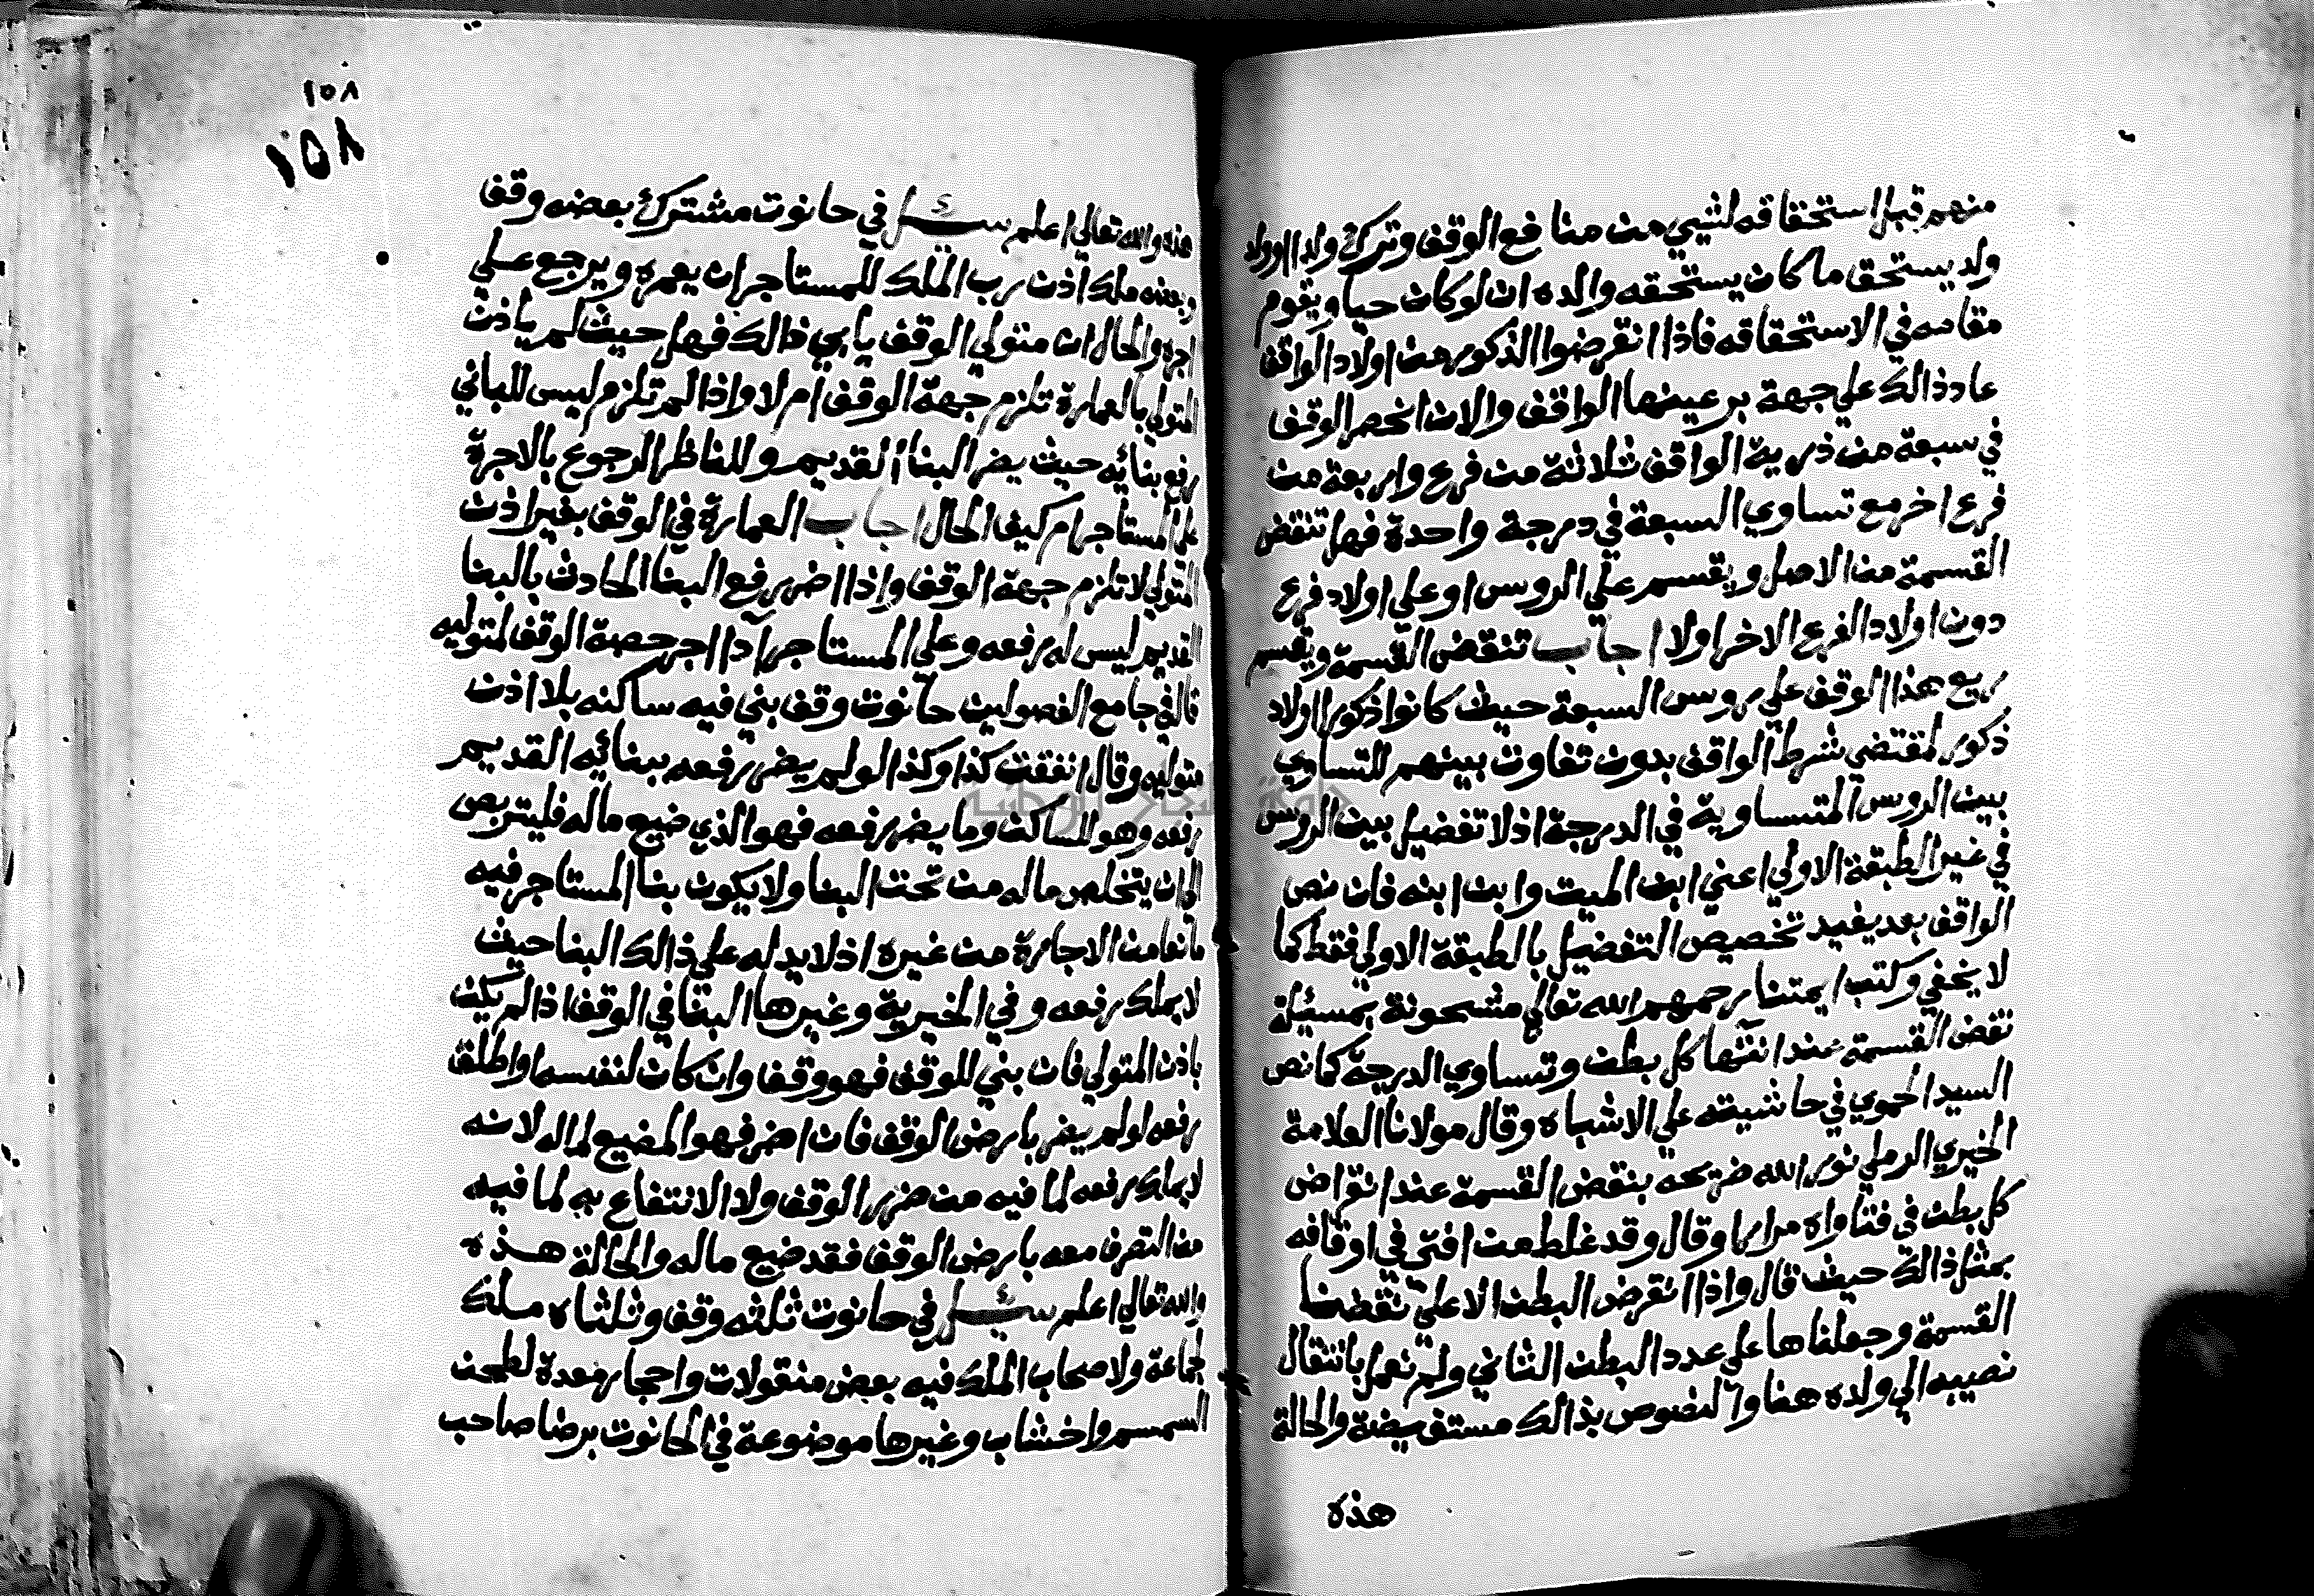 منهم قبل استحقاقه لشيي من منافع الوقف وترك ولدا او ولد
ولد يستحق ما كان يستحقه والده ان لو كان حيا ويقوم
مقامه في الاستحقاقه فاذا انقرضوا الذكور من اولاد الواقف
عاد ذالك علي جهة بر عينها الواقف والان انحصر الوقف
في سبعة من ذرية الواقف ثلاثة من فرع واربعة من
فرع اخر مع تساوي السبعة في درجة واحدة فهل تنقض
القسمة من الاصل ويقسم علي الروس او علي اولاد فرع
دون اولاد الفرع الاخر اولا اجاب تنقض القسمة ويقسم
ريع هذا الوقف علي روس السبعة حيث كانوا ذكورا اولاد
ذكور لمقتضي شرط الواقف بدون تفاوت بينهم للتساوي
بين الروس المتساوية في الدرجة اذ لا تفضيل بين الروس
في غير الطبقة الاولي اعني ابن الميت وابن ابنه فان نص
الواقف بعد يفيد تخصيص التفضيل بالطبقة الاولي فقط كما
لا يخفي وكتب ايمتنا رحمهم الله تعالي مشحونة بمسيلة
نقض القسمة عند انتها كل بطن وتساوي الدرجة كما نص
السيد الحموي في حاشيته علي الاشباه وقال مولانا العلامة
الخيري الرملي نور الله ضريحه بنقض القسمة عند انقراض
كل بطن في فتاواه مرارا وقال وقد غلط من افتى في اوقافه
بمثل ذالك حيث قال واذا انقرض البطن الاعلي نقضنا
القسمة وجعلناها علي عدد البطن الثاني ولم نعمل بانتقال
نصيبه الي ولده هنا والنصوص بذالك مستفيضة والحالة
هذه
١٥٨
١٥٨
هذه والله تعالي اعلم سئل في حانوت مشترك بعضه وقف
وبعضه ملك اذن رب الملك للمستاجر ان يعمره ويرجع علي
اجره والحال ان متولي الوقف يابي ذالك فهل حيث لم ياذن
المتولي بالعمارة تلزم جهة الوقف ام لا واذا لم تلزم ليس للباني
رفع بنائه حيث يضر البنا القديم وللناظر الرجوع بالاجرة
علي المستاجر ام كيف الحال اجاب العمارة في الوقف بغير اذن
المتولي لا تلزم جهة الوقف واذا اضر رفع البنا الحادث بالبنا
القديم ليس له رفعه وعلي المستاجر اذا اجر حصة الوقف لمتوليه
قال في جامع الفصولين حانوت وقف بني فيه ساكنه بلا اذن
متوليه وقال انفقت كذا وكذا لو لم يضر رفعه ببنائه القديم
رفعه وهو للساكن وما يضر رفعه فهو الذي ضيع ماله فليتربص
الي ان يتخلص ماله من تحت البنا ولا يكون بنا المستاجر فيه
مانعا من الاجارة من غيره اذ لا يد له علي ذالك البنا حيث
لا يملك رفعه وفي الخيرية وغيرها البنا في الوقف اذا لم يكن
باذن المتولي فان بني للوقف فهو وقف وان كان لنفسه او اطلق
رفعه لو لم يضر بارض الوقف فان اضر فهو المضيع لماله لانه
لا يملك رفعه لما فيه من ضرر الوقف ولا الانتفاع به لما فيه
من التصرف معه بارض الوقف فقد ضيع ماله والحالة هذه
والله تعالي اعلم سئل في حانوت ثلثه وقف وثلثاه ملك
لجماعة ولاصحاب الملك فيه بعض منقولات واحجار معدة لطحن
السمسم واخشاب وغيرها موضوعة في الحانوت برضا صاحب